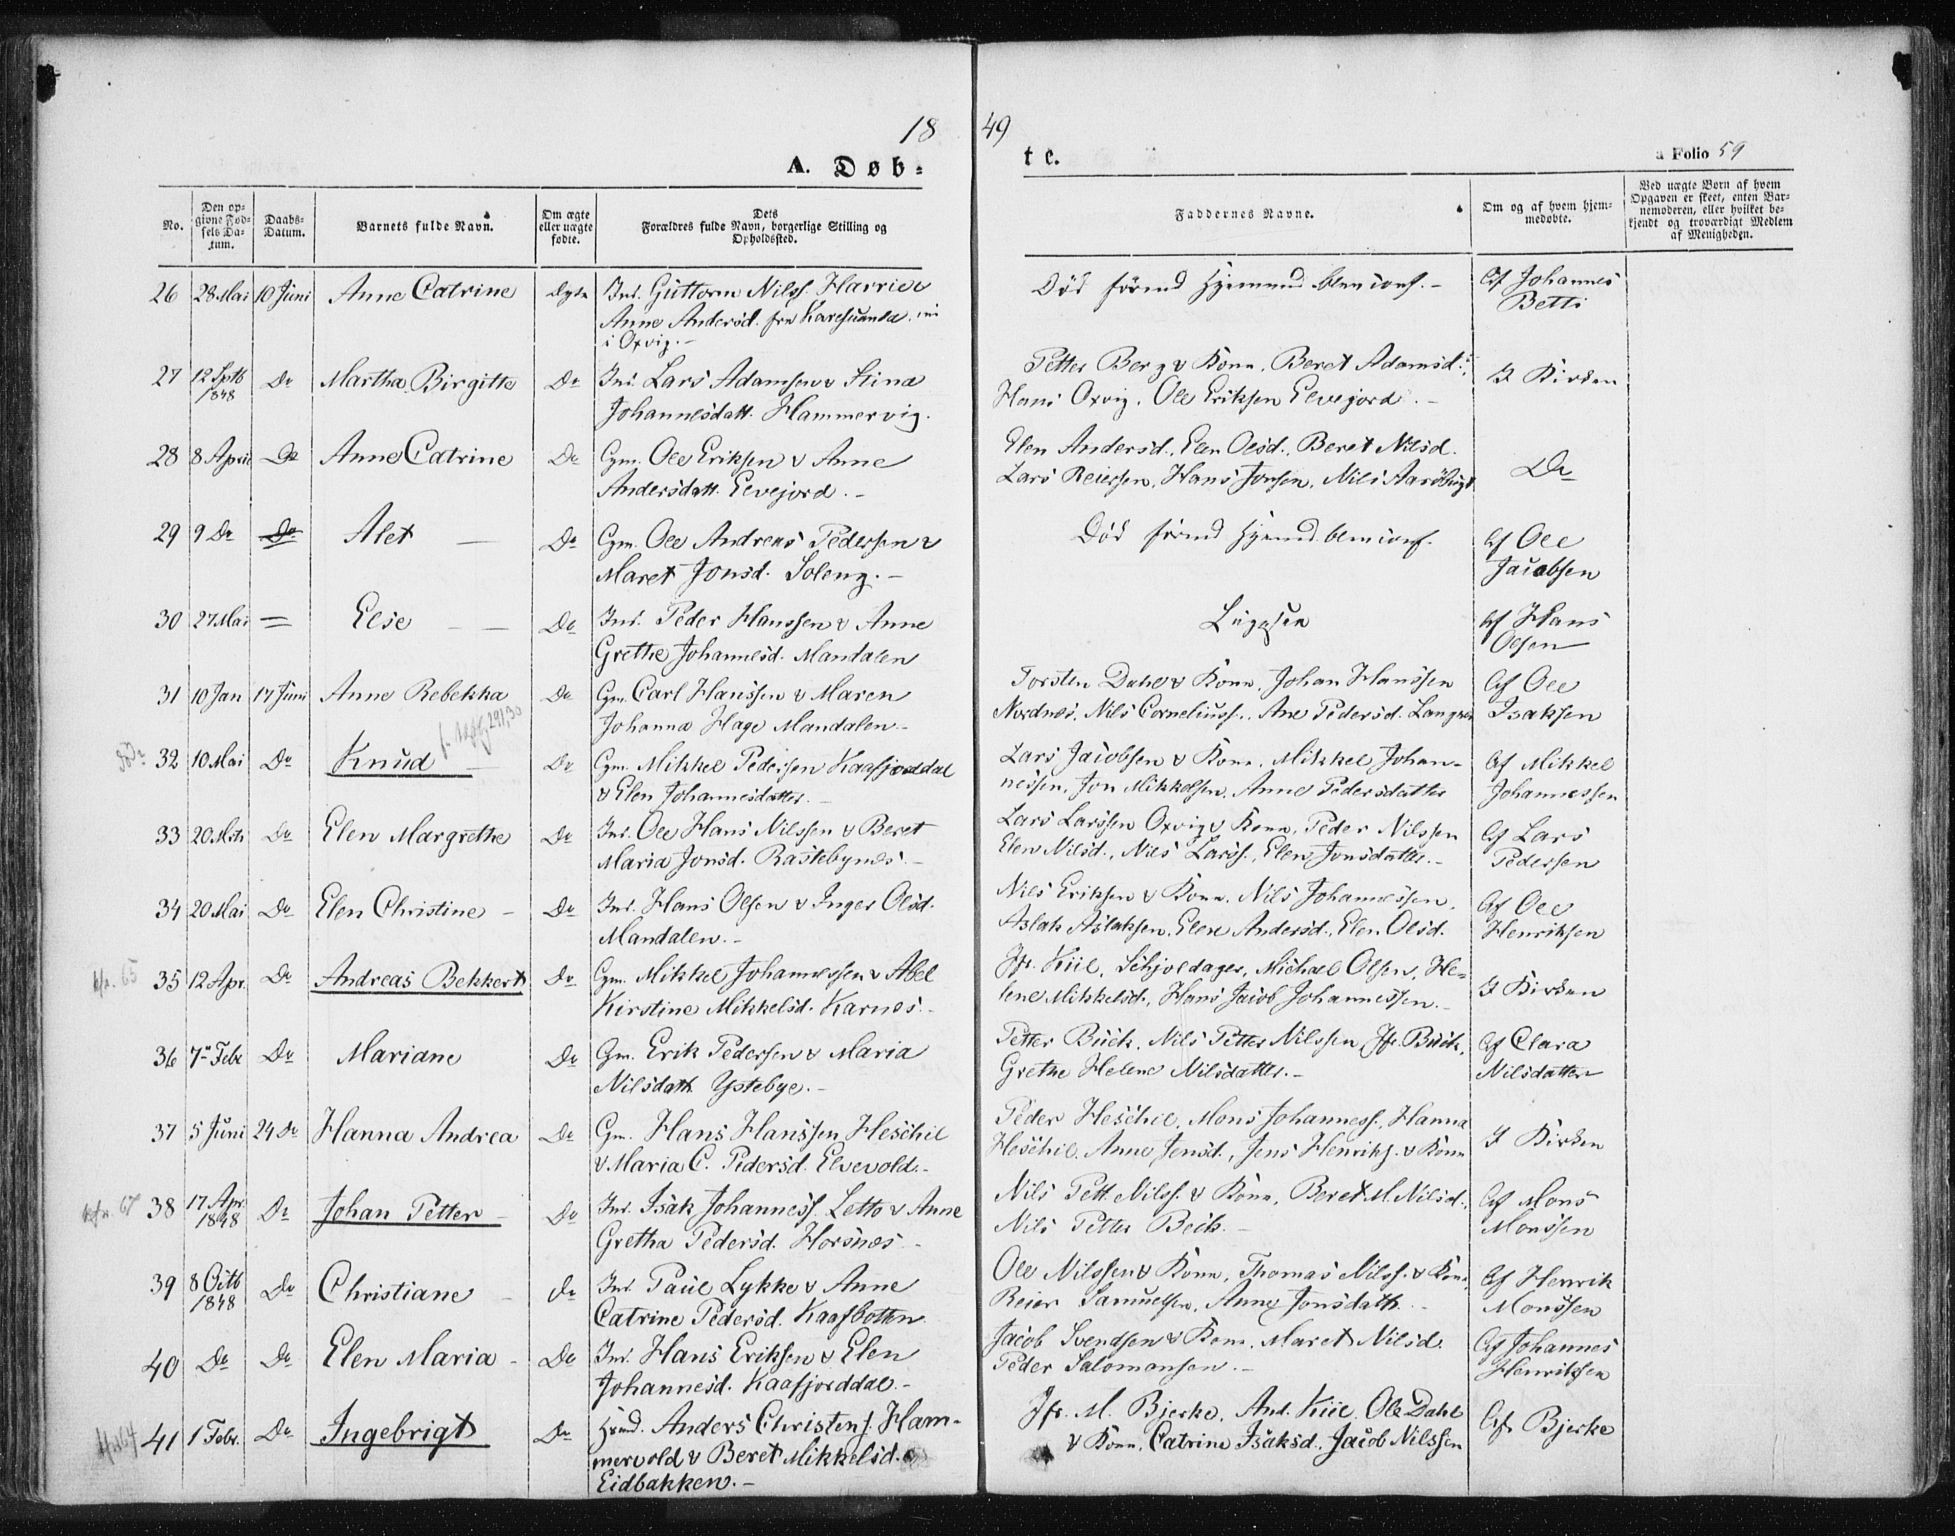 18 49
A. Døb-
te.
a Folio 59
No.
Den op-
givne Fød-
sels Da-
tum.
Daabs-
Datum.
Barnets fulde Navn.
Om ægte
eller uægte
fødte.
Dets
Forældres fulde Navn, borgerlige Stilling og
Opholdssted.
Faddernes Navne.
Om og af hvem hjem-
medøbte.
Ved uægte Børn af hvem
Opgaven er skeet, enten Bar-
nemoderen, eller hvilket be-
kjendt og troværdigt Medlem
af Menigheden.
26 28 Mai 10 Juni Anne Catrine Ægte Ind. Guttorm Nilss. Harri &
Anne Andersd. fra Karesuando
i Oxvig.-
Død förend Hjemmed. blev conf.-
Af Johannes
Betti
27 12 Septb 1848 Do Martha Birgitte Do Ind. Lars Adamsen & Stina
Johannesdatt. Hammervig.
Petter Berg & Kone, Beret Adamsd.,
Hans Oxvig, Ole Eriksen Elvejord.-
I Kirken
28 8 April Do Anne Catrine Do Gm. Ole Eriksen & Anne
Andersdatt. Elvejord.-
Elen Andersd., Elen Olsd., Beret Nilsd.
Lars Reiersen, Hans Jonsen, Nils
Do
29 9 Do Do Alet — Do Gm. Ole Andreas Pedersen &
Maret Jonsd. Soleng.-
Död förend Hjemmed. blev conf.
Af Ole
Jacobsen
30 27 Mai = Else — — Do Ind. Peder Hanssen & Anne
Grethe Johannesd. Mandalen
Ligesaa
Af Hans
Olsen
31 10 Jan 17 Juni Anne Rebekka Do Gm. Carl Hanssen & Maren
Johanna Hage Mandalen-
Torsten Dahl & Kone, Johan Hanssen
Nordnes, Nils Corneliuss., Ane Pedersd. Langnes
Af Ole
Isaksen
32 10 Mai Do Knud — Do Gm. Mikkel Pedersen Kaafjorddal
& Elen Johannesdatter.-
Lars Jacobsen & Kone, Mikkel Johan-
nessen, Jon Mikkelsen, Anne Pedersdatter
Af Mikkel
Johannessen
33 20 Mts Do Elen Margrethe Do Ind. Ole Hans Nilssen & Beret
Maria Jonsd. Rastebynes.-
Lars Larssen Oxvig & Kone, Peder Nilssen
Elen Nilsd., Nils Larss., Elen Jonsdatter.-
Af Lars
Pedersen
34 20 Mai Do Elen Christine - Do Ind. Hans Olsen & Inger Olsd.
Mandalen.-
Nils Eriksen & Kone, Nils Johannessen,
Aslak Aslaksen, Elen Andersd., Elen Olsd.
Af Ole
Henriksen
kfr. 65 35 12 Apr. Do Andreas Bekkert Do Gm. Mikkel Johannessen & Abel
Kirstine Mikkelsd. Karnes.-
Jfr. Kiil, Schjoldager, Michael Olsen, He-
lene Mikkelsd., Hans Jacob Johannessen.-
I Kirken
36 7de Febr Do Mariane Do Gm. Erik Pedersen & Maria
Nilsdatt. Ystebye.-
Petter Büch, Nils Petter Nilssen, Jfr. Büch,
Grethe Helene Nilsdatter.-
Af Clara
Nilsdatter
37 5 Juni 24 Do Hanna Andrea Do Gm. Hans Hanssen Heschil
& Maria C. Pedersd. Elvevold.-
Peder Heschil, Mons Johanness., Hanna
Heschil, Anne Jensd., Jens Henriks. & Kone
I Kirken
kfr. 67 38 17 Apr 1848 Do Johan Petter - Do Ind. Isak Johanness. Letto & Anne
Gretha Pedersd. Horsnes-
Nils Pett. Nilss. & Kone, Beret M. Nilsd.,
Nils Petter Beck.-
Af Mons
Monssen
39 8 Octb 1848 Do Christiane - Do Ind. Paul Lykke & Anne
Catrine Pedersd. Kaafbotten
Ole Nilssen & Kone, Thomas Nilss. & Kone,
Reier Samuelsen, Anne Jonsdatt.-
Af Henrik
Monssen
40 Do Do Elen Maria - Do Ind. Hans Eriksen & Elen
Johannesd. Kaafjorddal.-
Jacob Svendsen & Kone, Maret Nilsd.
Peder Salomonsen.-
Af Johannes
Henriksen
41 1 Febr. Do Ingebrigt Do Hmd. Anders Christens. Ham-
mervold & Beret Mikkelsd.
Eidbakken.-
Jfr. M. Bjerke, And. Kiil, Ole Dahl
& Kone, Catrine Isaksd., Jacob Nilssen
Af Bjerke